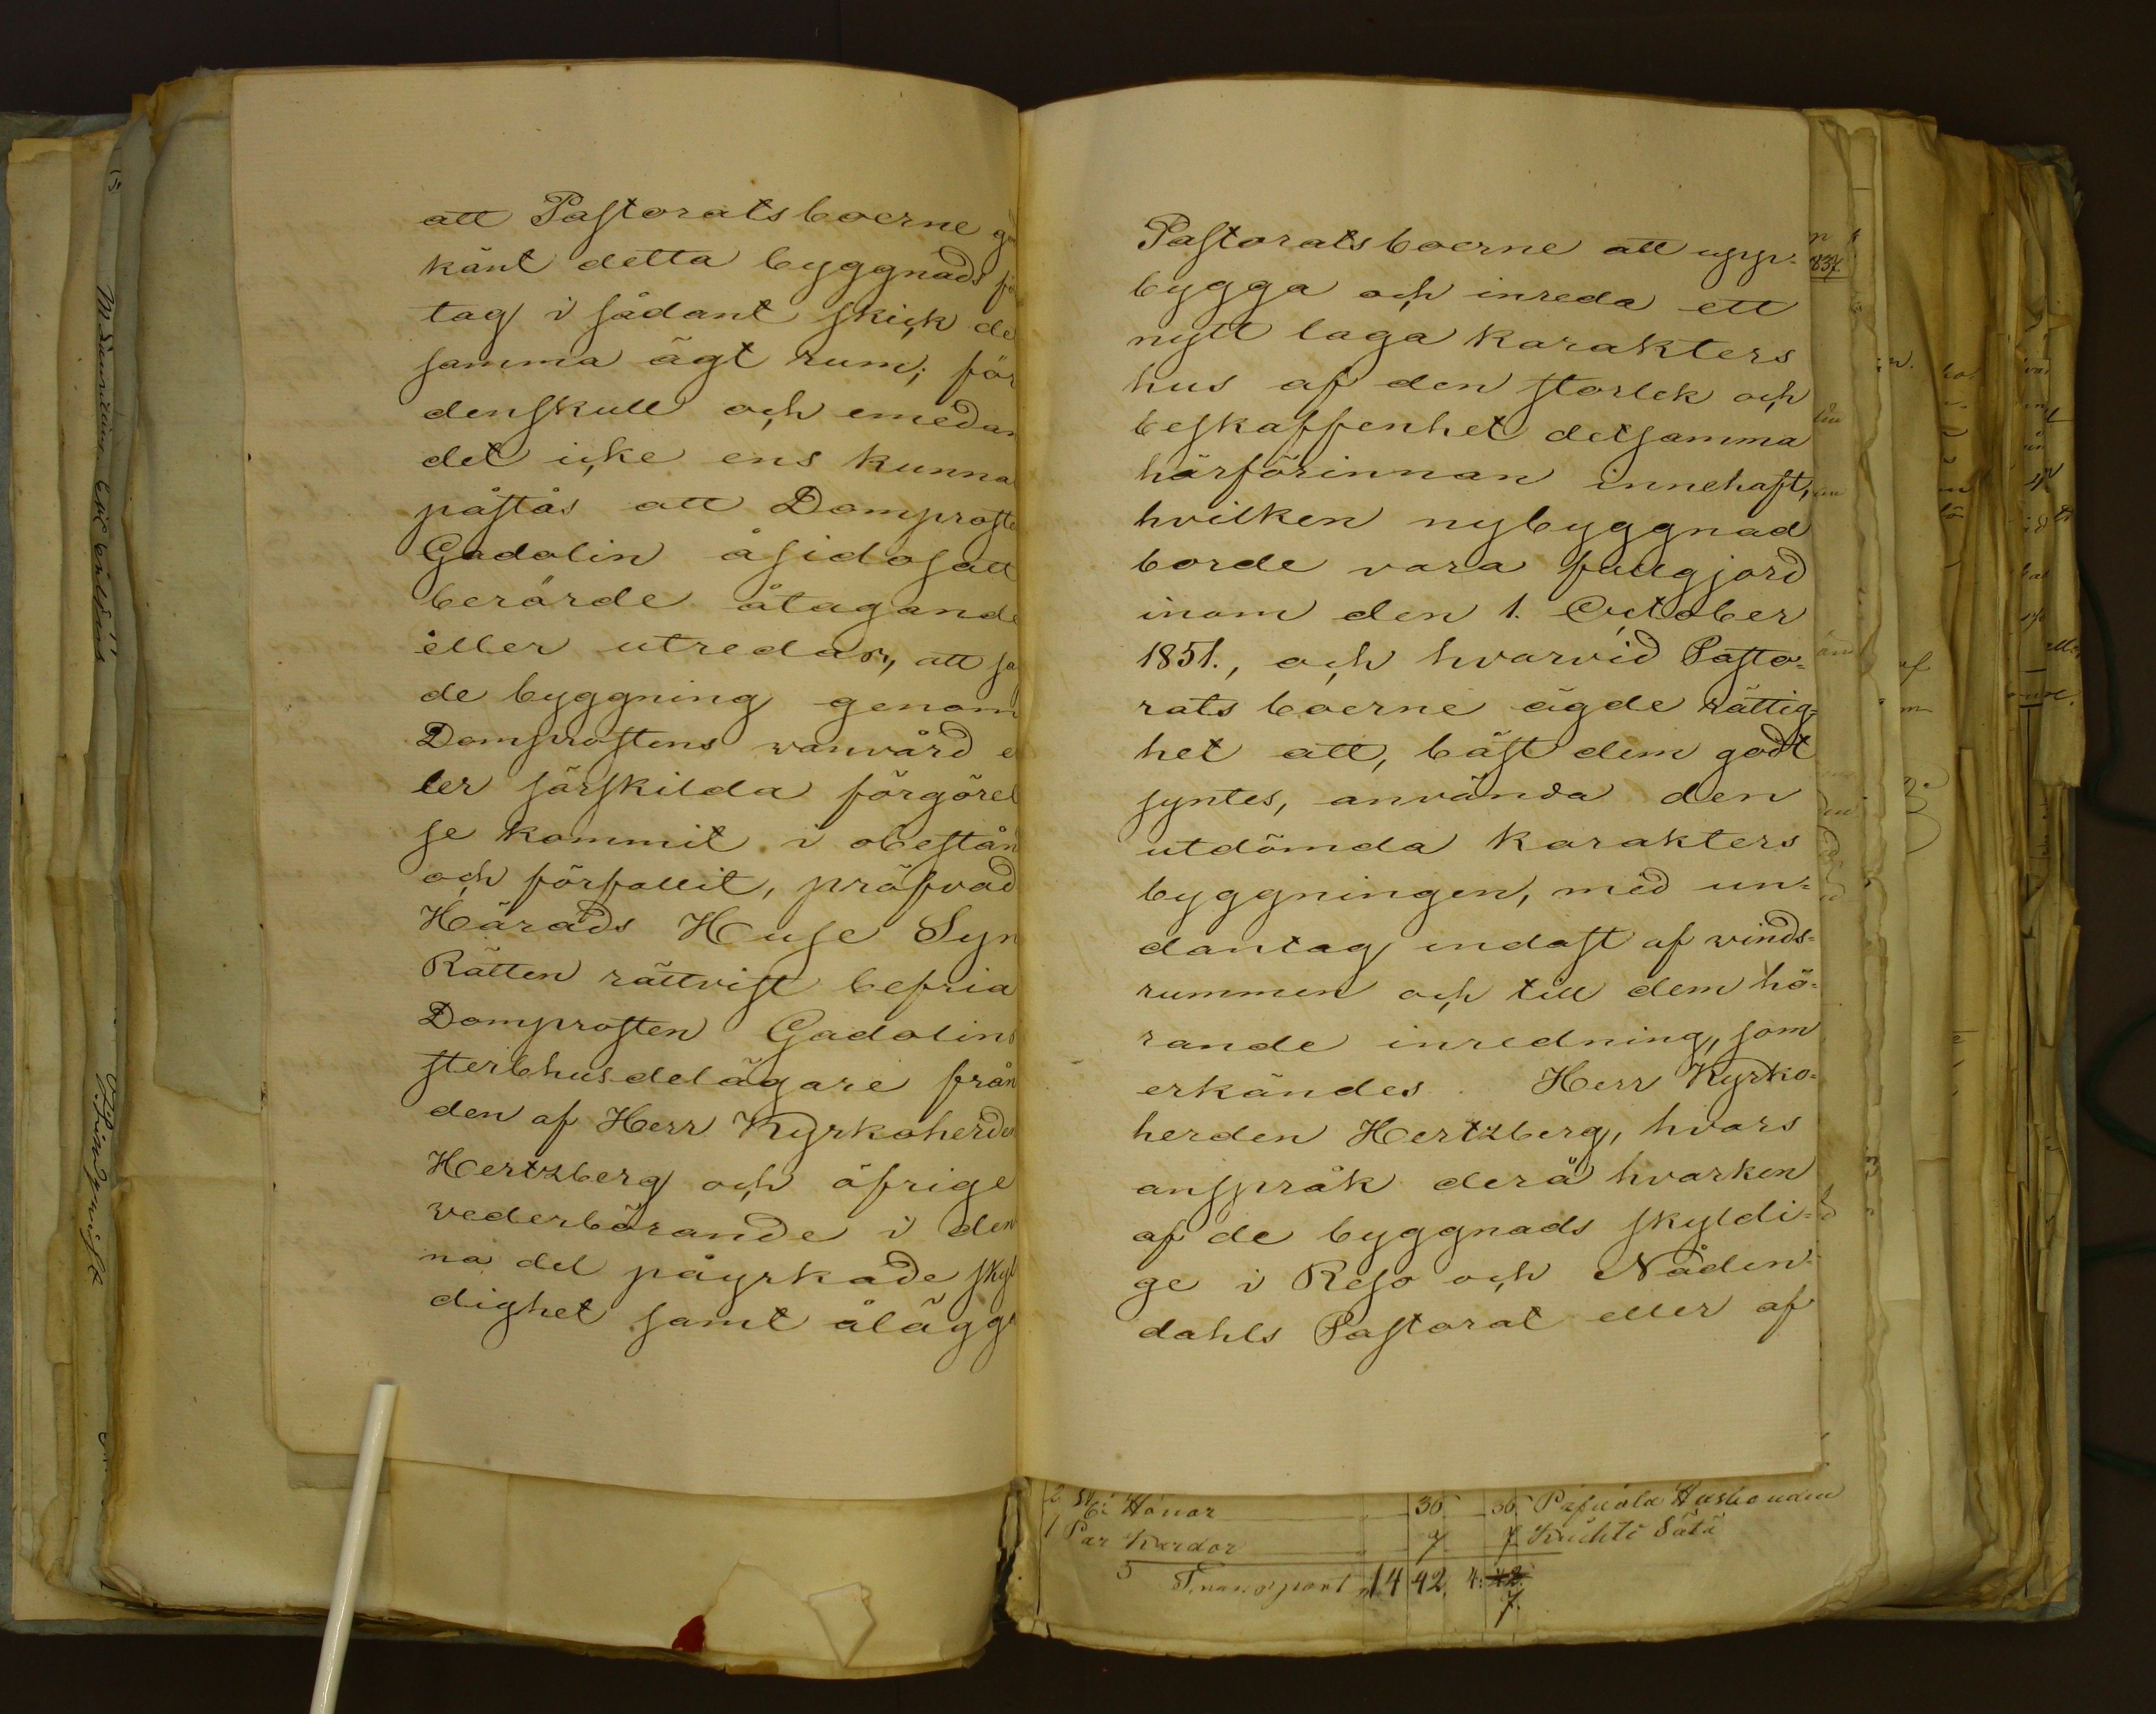 att Pastoratsboerne
känt detta byggnads fö
tag i sådant skick de
samma ägt rum; för
denskull och emedan
det icke ens kunna
påstås att Domproste
Gadolin åsidosatt
berörde åtagande
eller utredas, att sa
de byggning genom
Domprostens vanvård e
ler särskilda förgörel
se kommit i obestån
och förfallit, pröfvad
Härads Huse Syn
Rätten rättvist befria
Domprosten Gadolins
sterbhusdelägare från
den af Herr Kyrkoherden
Hertzberg och öfrige
vederbörande i den
na del påyrkade skyl
dighet samt ålägga
Pastoratsboerne att upp-
bygga och inreda ett
nytt laga karakters
hus af den storlek och
beskaffenhet detsamma
härförinnan innehaft,
hvilken nybyggnad
borde vara fullgjord
inom den 1. October
1851., och hvarvid Pasto-
rats boerne ägde rättig-
het att, bäst dem godt
syntes, använda den
utdömda karakters
byggningen, med un-
dantag endast af vinds-
rummen och till dem hö-
rande inredning, som
erkändes Herr Kyrko-
herden Hertzberg, hvars
anspråk derå hvarken
af de byggnads skyldi-
ge i Reso och Nåden-
dahls Pastorat eller af
2 St: Hönor 30 30
1 Par Kardor 7 7
Transport 14 42. 4: 42.
7.